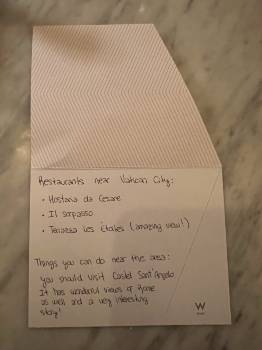 Restaurants near Vatican City:
• Hostaria da Cesare
• Il Sorpasso
• Terrazza Les Étoiles (amazing view!)
Things you can do near this area:
you should visit Castel Sant'Angelo
It has wonderful views of Rome
as well and a very interesting
story!
W